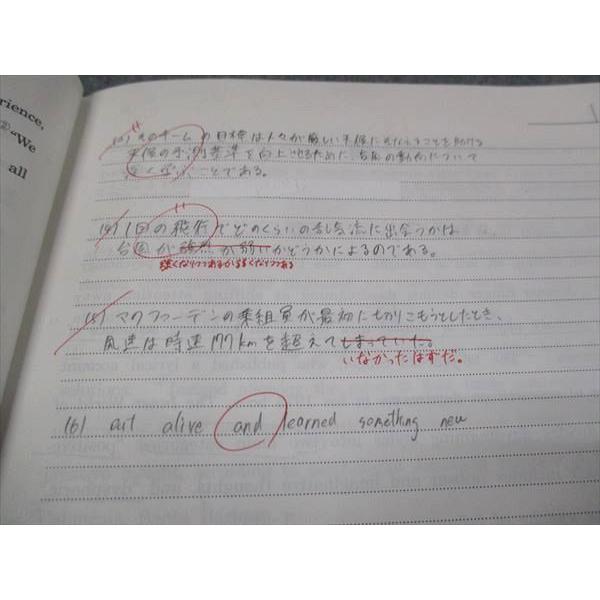 rience,
② "We
all
(3) そのチームの目標は人々が厳しい天候に
天候の予測基準を向上させるために、台風の動きについて
よく学ぶことである。
(4) 1回の飛行でどのくらいの乱気流に出会うかは
台風が が弱いかどうかによるのである。
強くなりつつあるか弱くなりつつある
(5) マクファーデンの乗組員が最初にもぐりこもうとしたとき、
風速は時速177kmを超えてしまっていた。
いなかったはずだ。
(6) out alive and learned something new